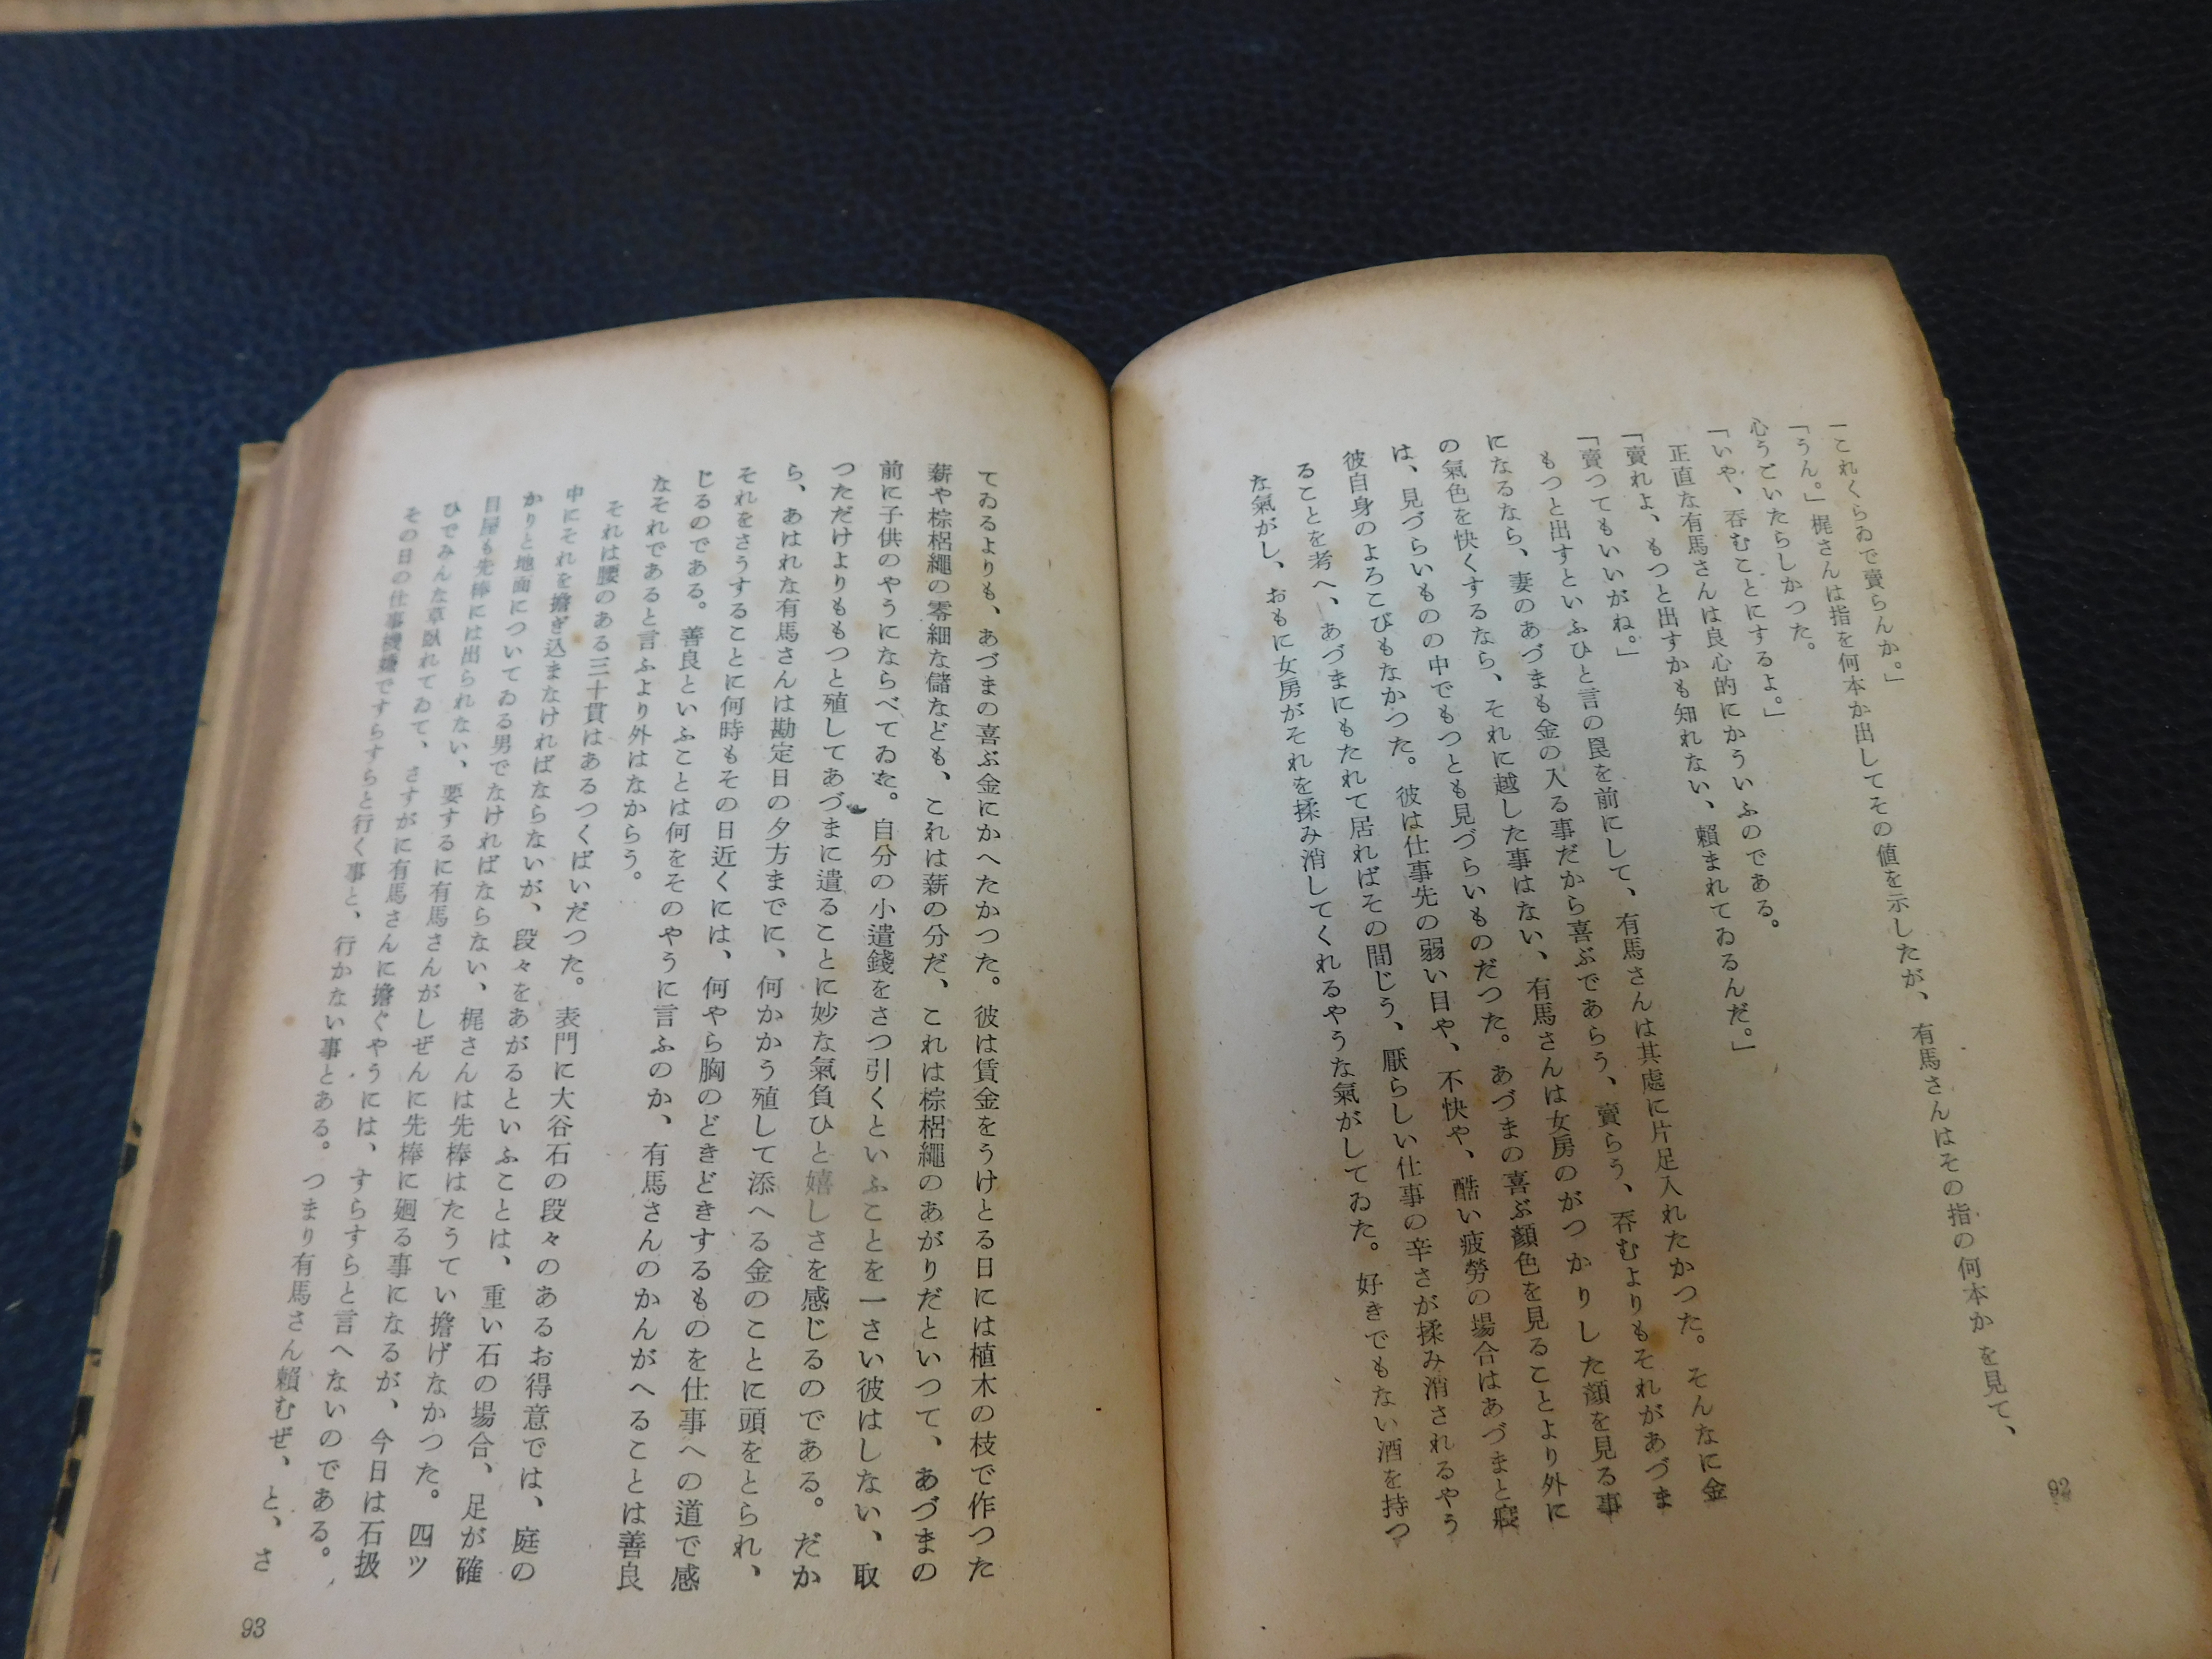 「これくらゐで賣らんか。」
「うん。」梶さんは指を何本か出してその値を示したが、有馬さんはその指の何本かを見て、
心うごいたらしかつた。
「いや、呑むことにするよ。」
正直な有馬さんは良心的にかういふのである。
「賣れよ、もつと出すかも知れない、賴まれてゐるんだ。」
「賣つてもいいがね。」
もつと出すといふひと言の罠を前にして、有馬さんは其處に片足入れたかつた。そんなに金
になるなら、妻のあづまも金の入る事だから喜ぶであらう、賣らう、呑むよりもそれがあづま
の氣色を快くするなら、それに越した事はない、有馬さんは女房のがつかりした顔を見る事
は、見づらいものの中でもつとも見づらいものだつた。あづまの喜ぶ顔色を見ることより外に
彼自身のよろこびもなかつた。彼は仕事先の弱い目や、不快や、酷い疲勞の場合はあづまと寢
ることを考へ、あづまにもたれて居ればその間じう、厭らしい仕事の辛さが揉み消されるやう
な氣がし、おもに女房がそれを揉み消してくれるやうな氣がしてゐた。好きでもない酒を持つ
92
てゐるよりも、あづまの喜ぶ金にかへたかつた。彼は賃金をうけとる日には植木の枝で作つた
薪や棕梠繩の零細な儲なども、これは薪の分だ、これは棕梠繩のあがりだといつて、あづまの
前に子供のやうにならべてゐた。自分の小遣錢をさつ引くといふことを一さい彼はしない、取
つただけよりももつと殖してあづまに遣ることに妙な氣負ひと嬉しさを感じるのである。だか
ら、あはれな有馬さんは勘定日の夕方までに、何かかう殖して添へる金のことに頭をとられ、
それをさうすることに何時もその日近くには、何やら胸のどきどきするものを仕事への道で感
じるのである。善良といふことは何をそのやうに言ふのか、有馬さんのかんがへることは善良
なそれであると言ふより外はなからう。
それは腰のある三十貫はあるつくばいだつた。表門に大谷石の段々のあるお得意では、庭の
中にそれを擔ぎ込まなければならないが、段々をあがるといふことは、重い石の場合、足が確
かりと地面についてゐる男でなければならない、梶さんは先棒はたうてい擔げなかつた。四ツ
目屋も先棒には出られない、要するに有馬さんがしぜんに先棒に廻る事になるが、今日は石扱
ひでみんな草臥れてゐて、さすがに有馬さんに擔ぐやうには、すらすらと言へないのである。
その日の仕事機嫌ですらすらと行く事と、行かない事とある。つまり有馬さん賴むぜ、と、さ
93